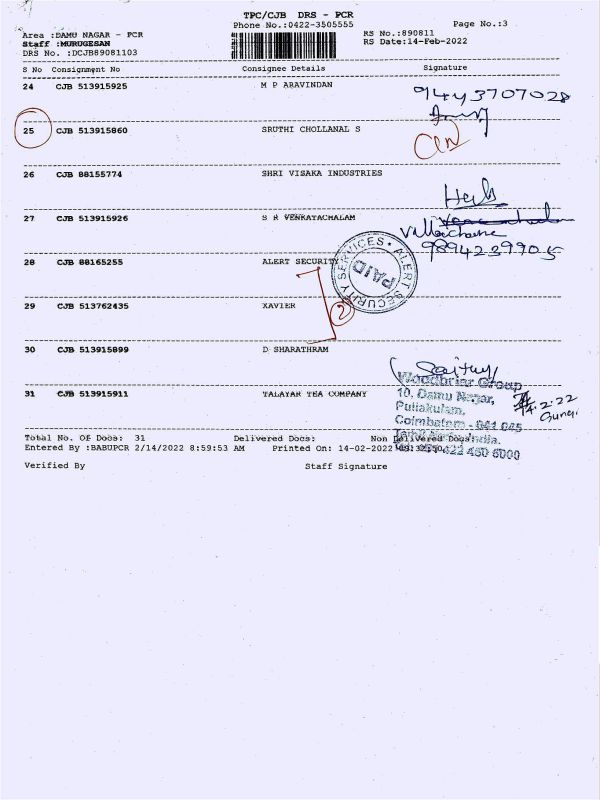 TPC/CJB DRS - PCR
Phone No.:0422-3505555 Page No.:3
Area :DAMU NAGAR - PCR RS No.:890811
Staff :MURUGESAN RS Date:14-Feb-2022
DRS No. :DCJB89081103
S No Consignment No Consignee Details Signature
24 CJB 513915925 M P ARAVINDAN
9443707028
25 CJB 513915860 SRUTHI CHOLLANAL S
26 CJB 88155774 SHRI VISAKA INDUSTRIES
27 CJB 513915926 S R VENKATACHALAM
9894239905
28 CJB 88165255 ALERT SECURITY
ALERT SECURITY SERVICES
PAID
29 CJB 513762435 XAVIER
2
30 CJB 513915899 D SHARATHRAM
31 CJB 513915911 TALAYAR TEA COMPANY
Woodbriar Group
10, Damu Nagar,
Puliakulam,
Coimbatore - 641 045
14.2.22
Total No. Of Docs: 31 Delivered Docs: Non Delivered Docs:
Entered By :BABUPCR 2/14/2022 8:59:53 AM Printed On: 14-02-2022
Verified By Staff Signature